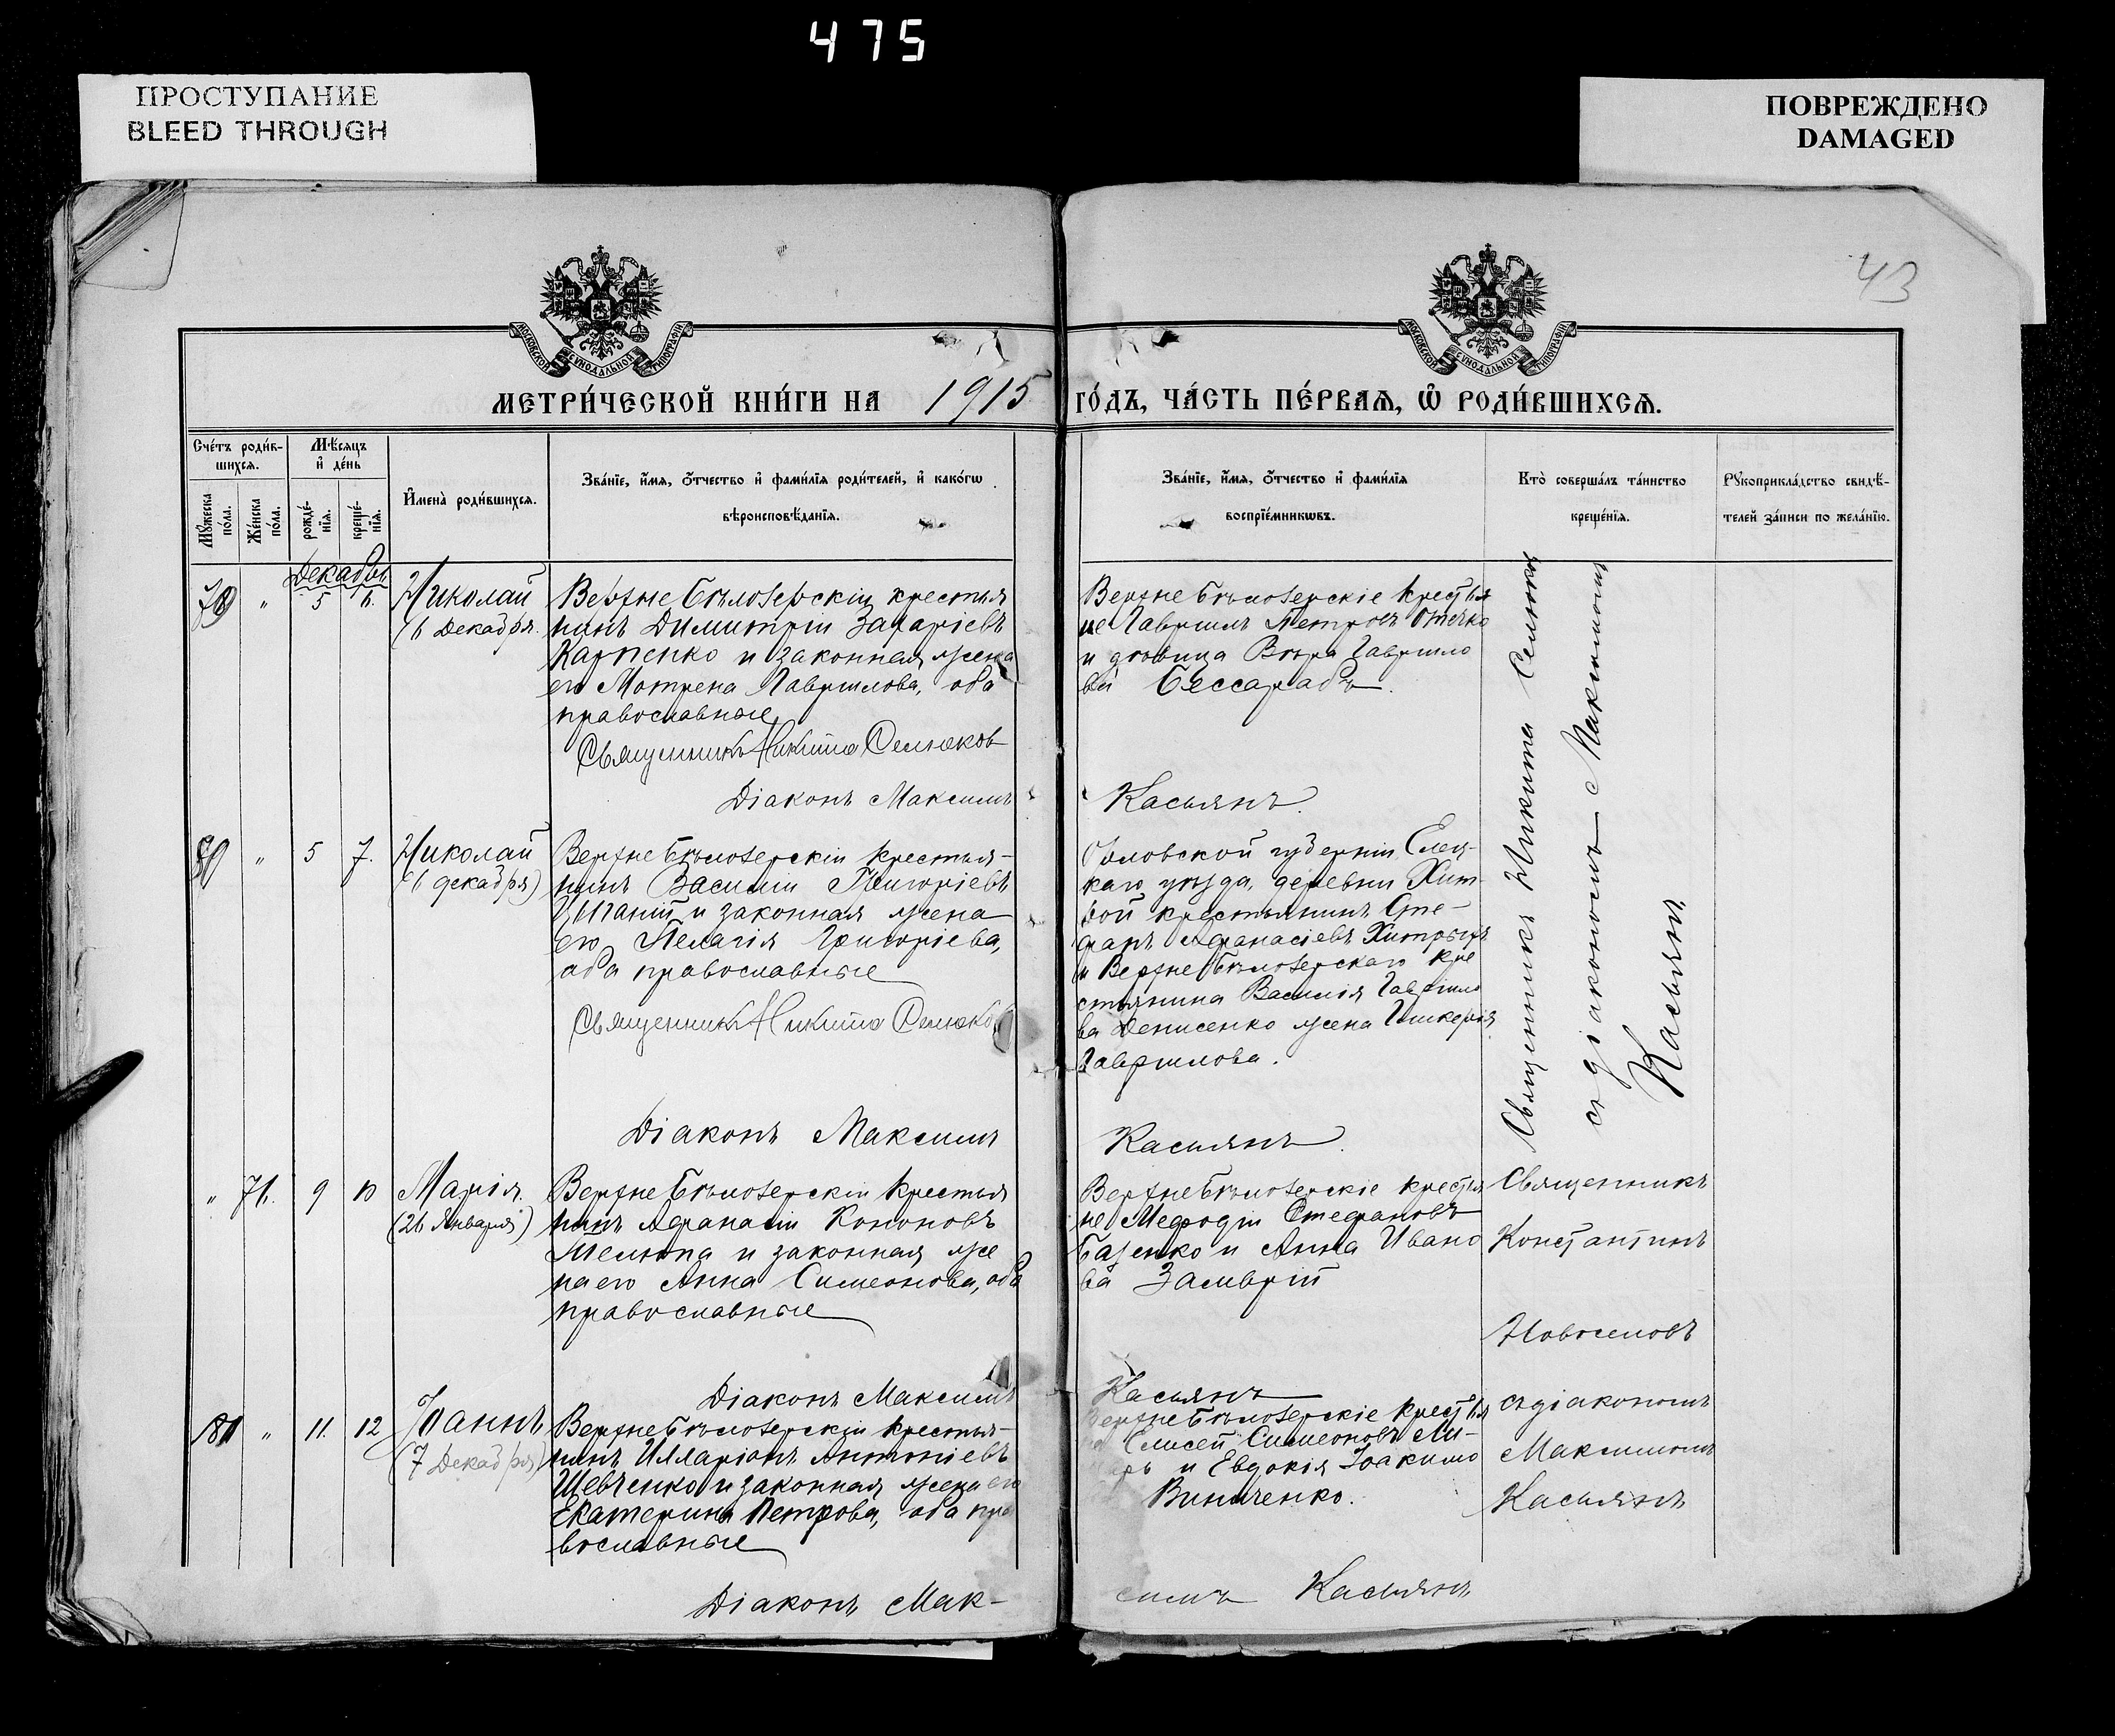 475
ПРОСТУПАНИЕ
BLEED THROUGH
ПОВРЕЖДЕНО
DAMAGED
43
МОСКОВСКОЙ СѴНОДАЛЬНОЙ ТИПОГРАФІИ
МОСКОВСКОЙ СѴНОДАЛЬНОЙ ТИПОГРАФІИ
МЕТРИ́ЧЕСКОЙ КНИ́ГИ НА 1915 ГО́ДЪ, ЧА́СТЬ ПЕ́РВАѦ, Ѡ҆ РОДИ́ВШИХСѦ.
Сче́тъ роди́в-
шихсѧ.
Мꙋ́жеска по́ла.
Же́нска по́ла.
Мѣ́сѧцъ
и҆ де́нь
рожде́-
нїѧ.
креще́-
нїѧ.
И҆мена̀ роди́вшихсѧ.
Зва́нїе, и҆́мѧ, ѻ҆́тчество и҆ фами́лїѧ роди́телей, и҆ како́гѡ
вѣроисповѣ́данїѧ.
Зва́нїе, и҆́мѧ, ѻ҆́тчество и҆ фами́лїѧ
воспрїе́мникѡвъ.
Кто̀ соверша́лъ та́инство
креще́нїѧ.
Рꙋкоприкла́дство свидѣ́-
телей за́писи по жела́нїю.
Декабрь
" 5 6.
Николай
(6 Декабря.
Верхне Бѣлозерскій крестья
нинъ Димитрій Захаріевъ
Карпенко и законная жена
его Мотрена Гаврилова, оба
православные
Священникъ Никита Селюков
Діаконъ Максимъ
Верхне Бѣлозерскіе крестья
не Гавриилъ Петровъ
и дѣвица Вѣра Гаврило
ва Бессарабъ.
Касьянъ
Священникъ Никита
съ діакономъ Максимомъ
Касьянъ
80 " 5 7.
Николай
(6 декабря)
Верхне Бѣлозерскій крестья-
нинъ Василій Григоріевъ
Цыганій и законная жена
его Пелагія Григоріева,
оба православные
Священникъ Никита Селюков
Діаконъ Максимъ
Орловской губерніи Елец-
каго уѣзда, деревни Хит-
вой крестьянинъ Сте-
фанъ Афанасіевъ
и Верхне Бѣлозерскаго кре
стьянина Василія Гаврило
ва Денисенко жена Гликерія
Гаврилова.
Касьянъ
" 76. 9 10
Марія.
(26 Января)
Верхне Бѣлозерскій крестья
нинъ Афанасій Кононовъ
и законная же
на его Анна Симеонова, оба
православные
Діаконъ Максимъ
Верхне Бѣлозерскіе крестья
не Мефодій Стефановъ
и Анна Ивано
ва Замврій
Касьянъ
Священникъ
Константинъ
Новоселовъ
съ діакономъ
Максимомъ
Касьянъ
81 " 11. 12
Іоаннъ
(7 Декабря)
Верхне Бѣлозерскій крестья-
нинъ Илларіонъ Антоніевъ
Шевченко и законная жена его
Екатерина Петрова, оба пра
вославные
Діаконъ Мак-
Верхне Бѣлозерскіе крестья
не Елисей Симеоновъ
и Евдокія Іоакимо
Винниченко.
симъ Касьянъ